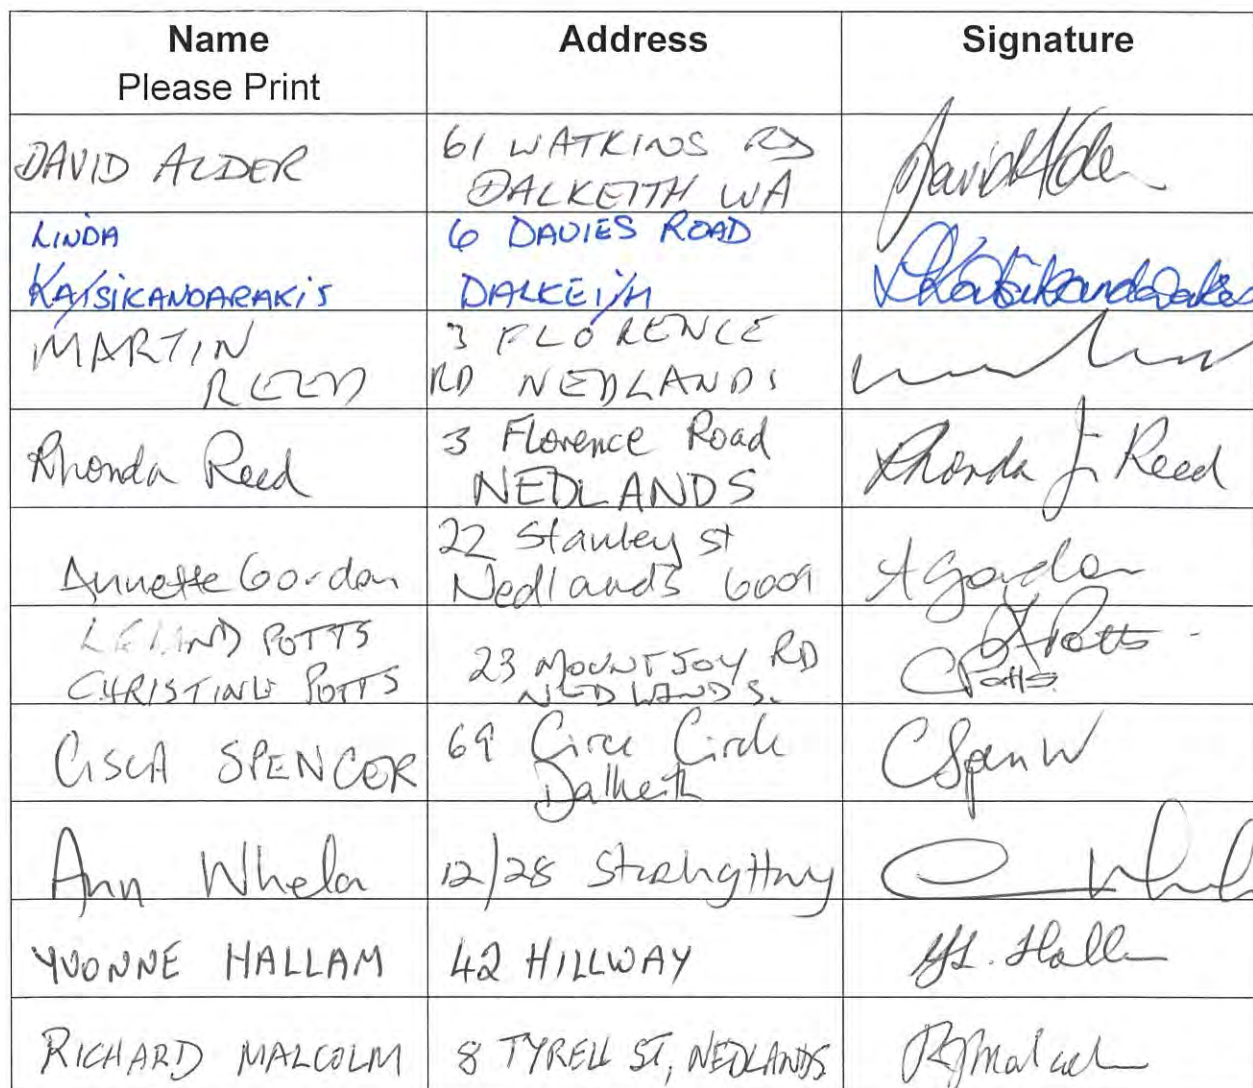 Name
Please Print
Address
Signature
DAVID ALDER
61 WATKINS RD
DALKEITH WA
David Alder
LINDA
KATSIKANDARAKIS
6 DAVIES ROAD
DALKEITH
LKatsikandarakis
MARTIN
REED
3 FLORENCE
RD NEDLANDS
Rhonda Reed
3 Florence Road
NEDLANDS
Rhonda J Reed
Annette Gordon
22 Stanley st
Nedlands 6009
A Gordon
LELAND POTTS
CHRISTINE POTTS
23 MOUNTJOY RD
NEDLANDS.
Potts
CPotts
CISCA SPENCER
69 Circe Circle
Dalkeith
Ann Whelan
12/28
YVONNE HALLAM
42 HILLWAY
RICHARD MALCOLM
8 TYRELL ST, NEDLANDS